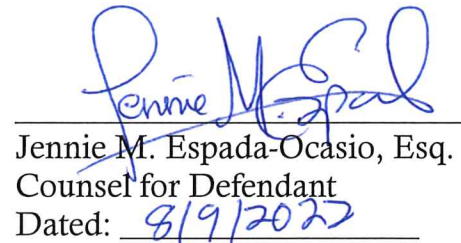 Jennie M. Espada
Jennie M. Espada-Ocasio, Esq.
Counsel for Defendant
Dated: 8/9/2022